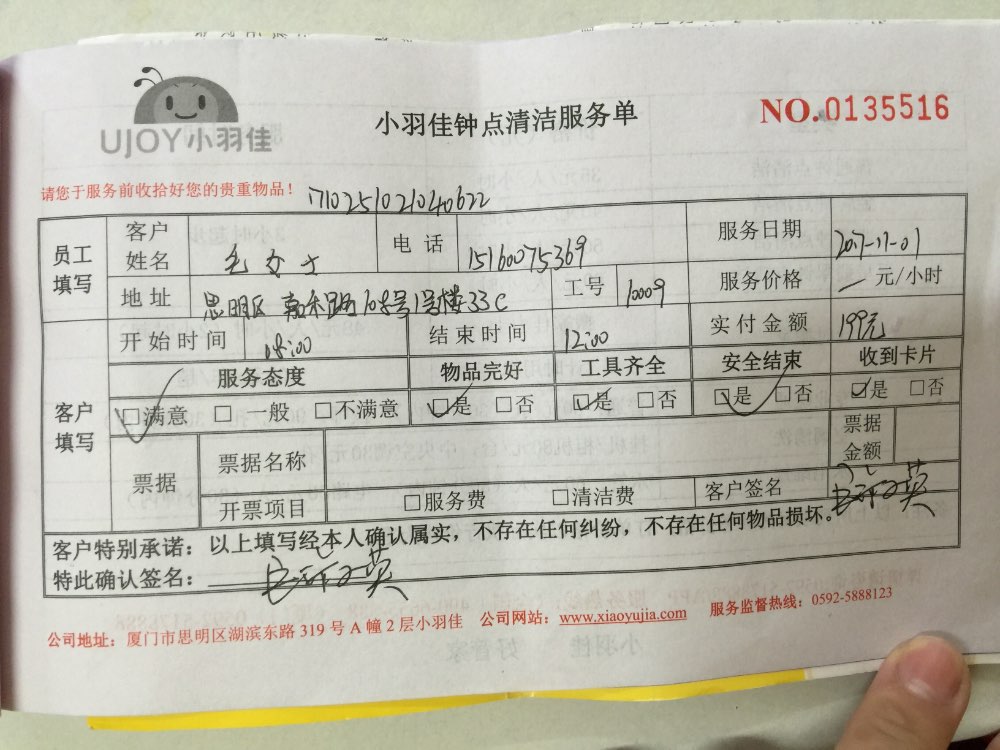 UJOY小羽佳
小羽佳钟点清洁服务单
NO.0135516
请您于服务前收拾好您的贵重物品！
1710251021040622
员工填写 客户姓名 女士 电话 15160075369 服务日期 2017-11-01
地址 思明区嘉禾路108号1号楼33C 工号 10009 服务价格 元/小时
客户填写 开始时间 08:00 结束时间 12:00 实付金额 199元
服务态度 物品完好 工具齐全 安全结束 收到卡片
☑满意 □一般 □不满意 ☑是 □否 ☑是 □否 ☑是 □否 ☑是 □否
票据 票据名称 票据金额
开票项目 □服务费 □清洁费 客户签名
客户特别承诺：以上填写经本人确认属实，不存在任何纠纷，不存在任何物品损坏。
特此确认签名：
公司地址：厦门市思明区湖滨东路 319 号 A 幢 2 层小羽佳 公司网站：www.xiaoyujia.com 服务监督热线：0592-5888123